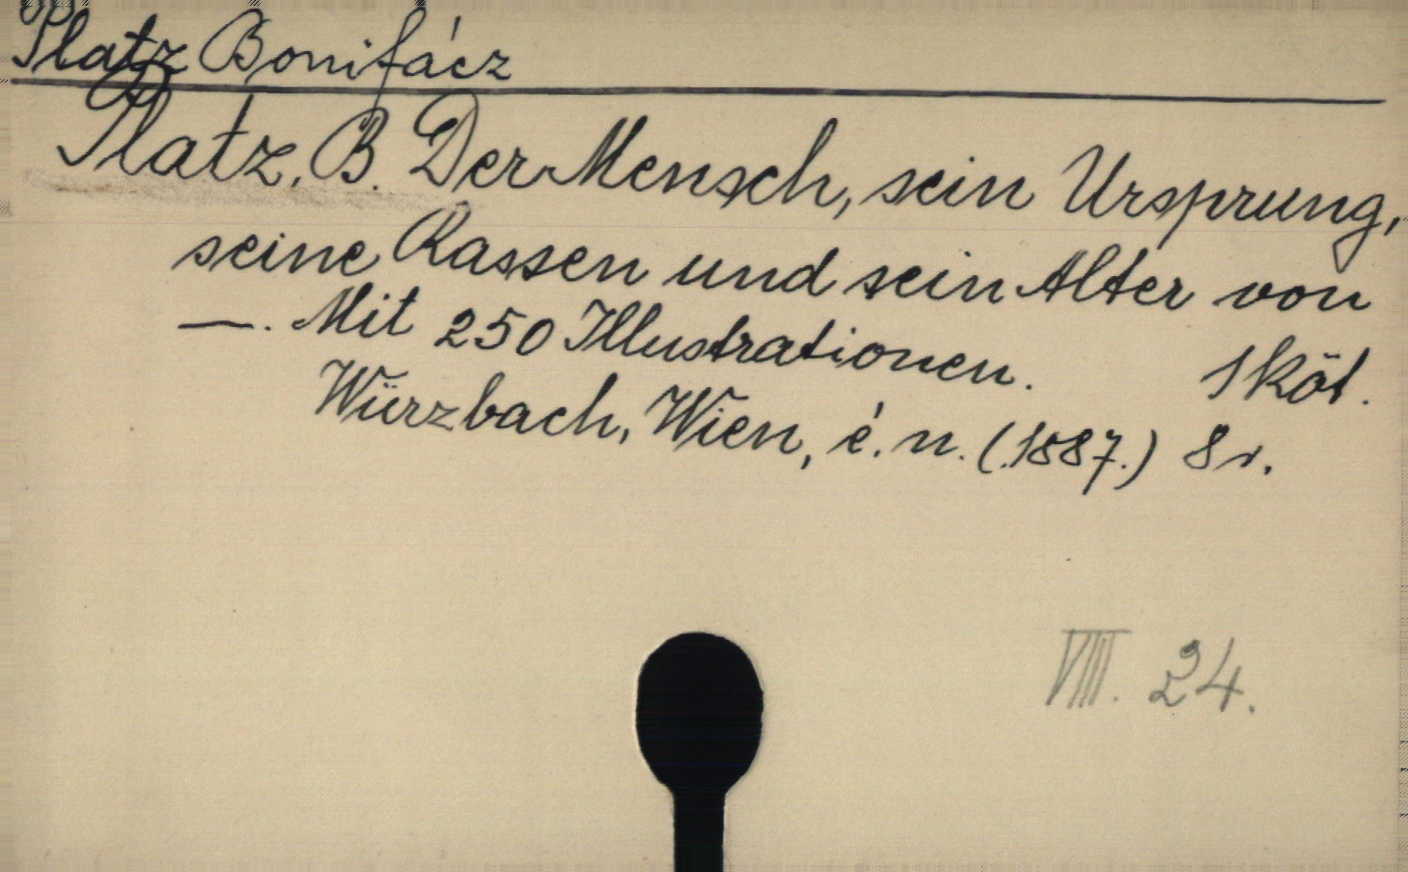 Platz Bonifácz
Platz, B. Der Mensch, sein Ursprung,
seine Rassen und sein Alter von
—. Mit 250 Illustrationen. 1 köt.
Würzbach, Wien, é. n. (.1887.) 8r.
VIII. 24.